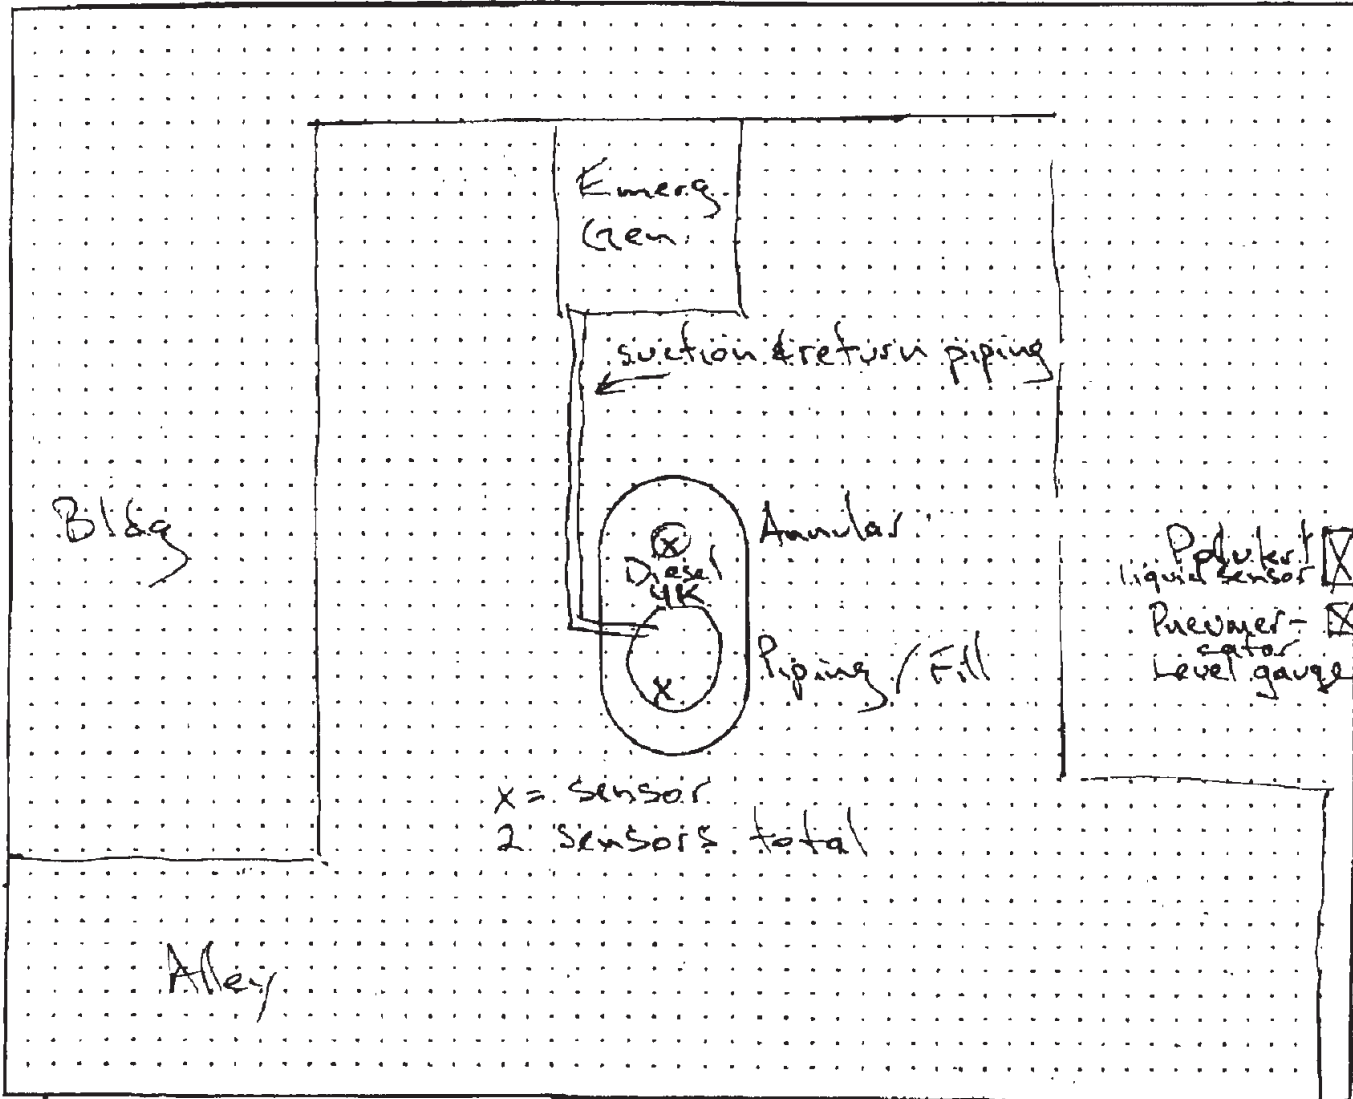 Emerg.
Gen.
suction & return piping
Bldg
Annular
Diesel
4K
Piping / Fill
liquid sensor
Pneumer-
cator
Level gauge
x = sensor
2 sensors total
Alley